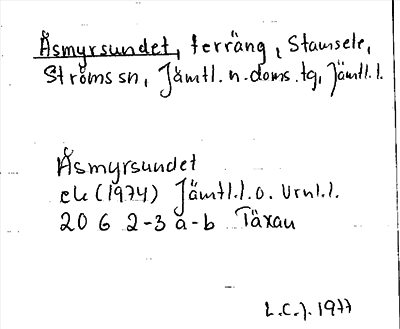 Åsmyrsundet, terräng, Stamsele,
Ströms sn, Jämtl. n. doms. tg, Jämtl. l.
Åsmyrsundet
ek (1974) Jämtl. l. o. Vrnl. l.
20 G 2-3 a-b Täxan
L.C.J. 1977